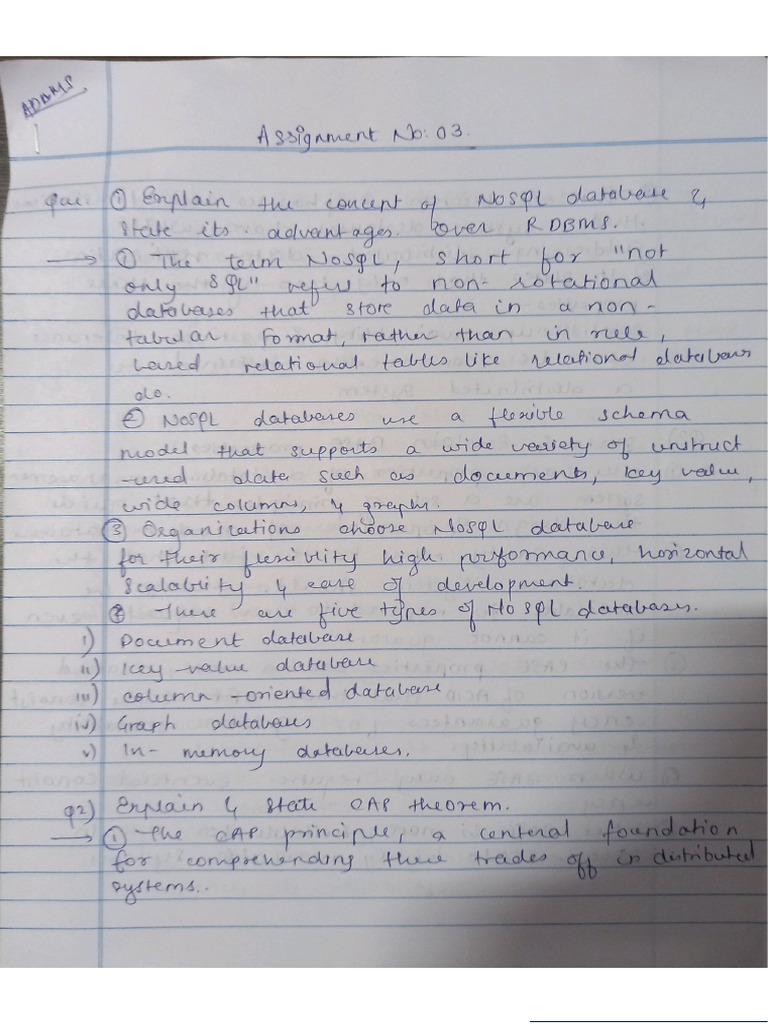 ADBMS
Assignment No: 03.
Que ① Explain the concept of NoSQL database &
state its advantages over RDBMS.
→ ① The term NoSQL, short for "not
only SQL" refers to non-rotational
databases that store data in a non-
tabular format, rather than in rule,
based relational tables like relational databases
do.
② NoSQL databases use a flexible schema
model that supports a wide variety of unstruct
-ured data such as documents, key value,
wide columns, & graphs.
③ Organizations choose NoSQL database
for their flexiblity high performance, horizontal
scalability & ease of development.
There are five types of NoSQL databases.
i) Document database
ii) key-value database
iii) column-oriented database
iv) Graph databases
v) In-memory databases.
Q2) Explain & state CAP theorem.
→ ① The CAP principle, a centeral foundation
for comprehending these trades off in distributed
systems..